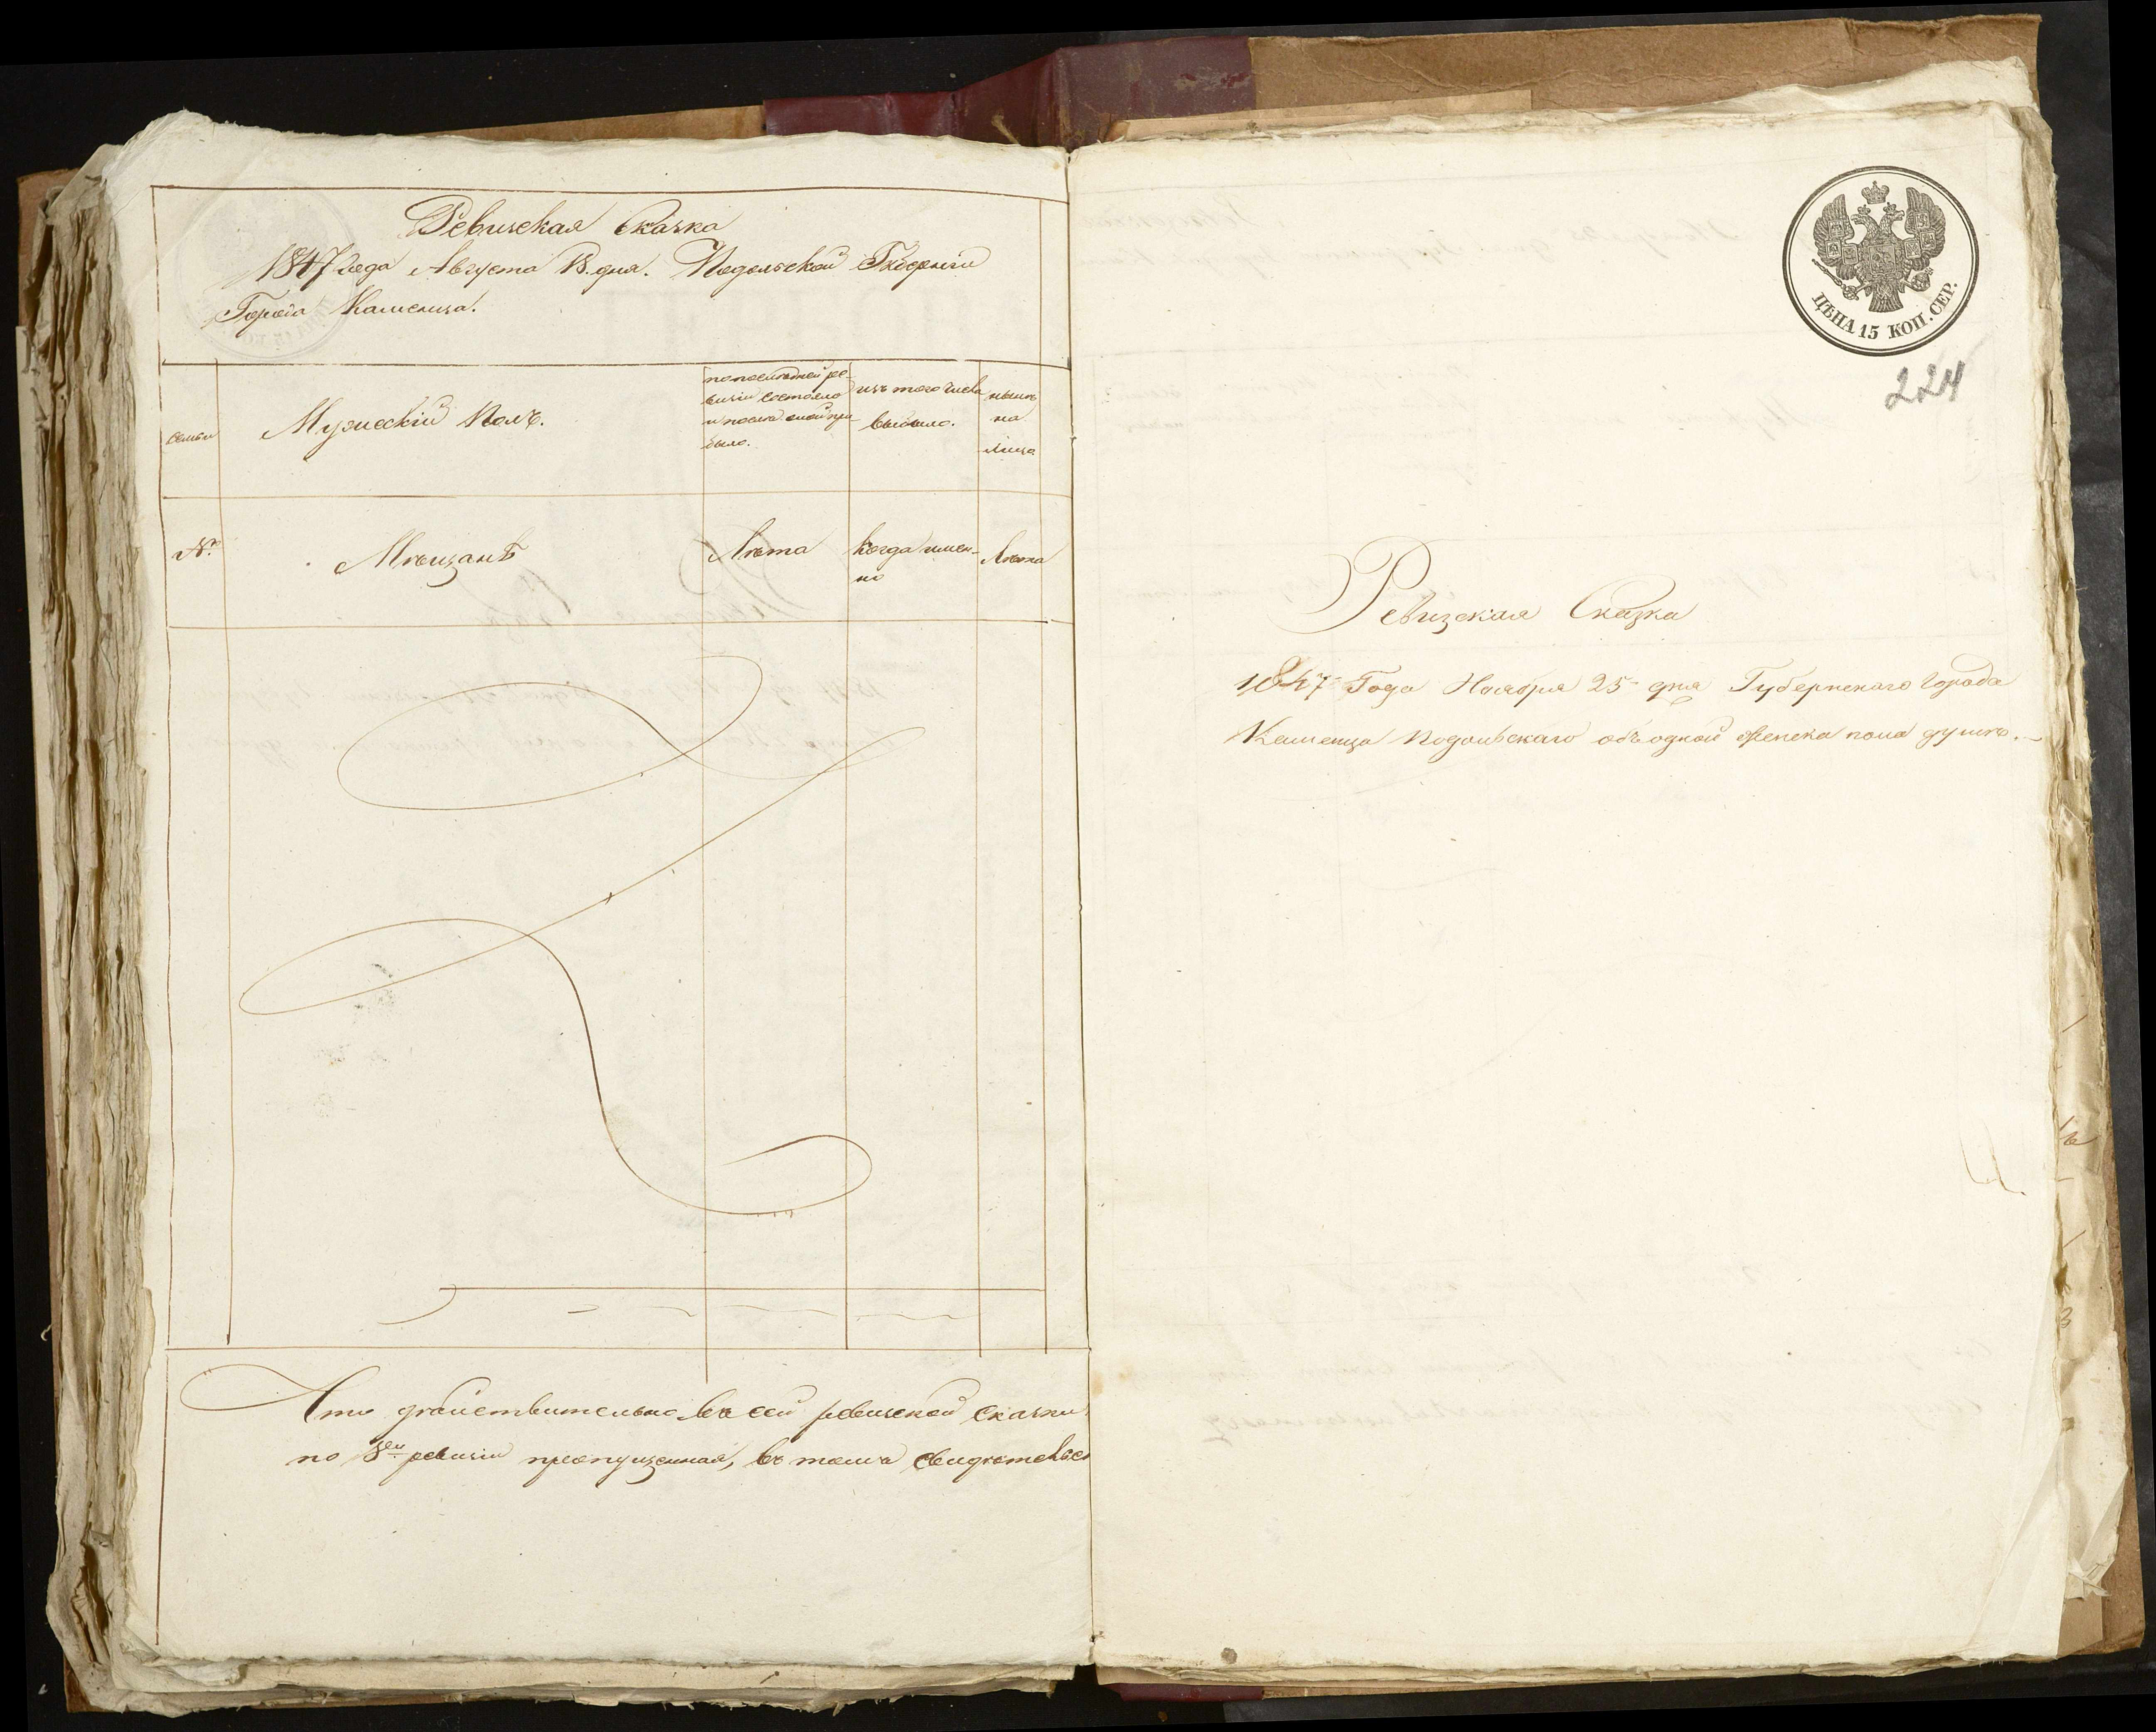 Ревизская Сказка
1847 года Августа 13. дня. Подольской Губерніи
Города Каменца.
семьи
Мужескій Полъ.
по последней ре-
визіи состояло
и после оной при
было.
изъ того числа
выбыло.
нынѣ
на
лицо
№.
Мѣщанъ
Лѣта
когда имен-
но
Лѣта
Что действительно въ сей ревизской сказки
по 8ей ревизіи пропущенная, въ томъ
ЦѢНА 15 КОП. СЕР.
224
Ревизская Сказка
1847 Года Ноября 25 дня Губернскаго города
Каменца Подольскаго объ одной женска пола душѣ.